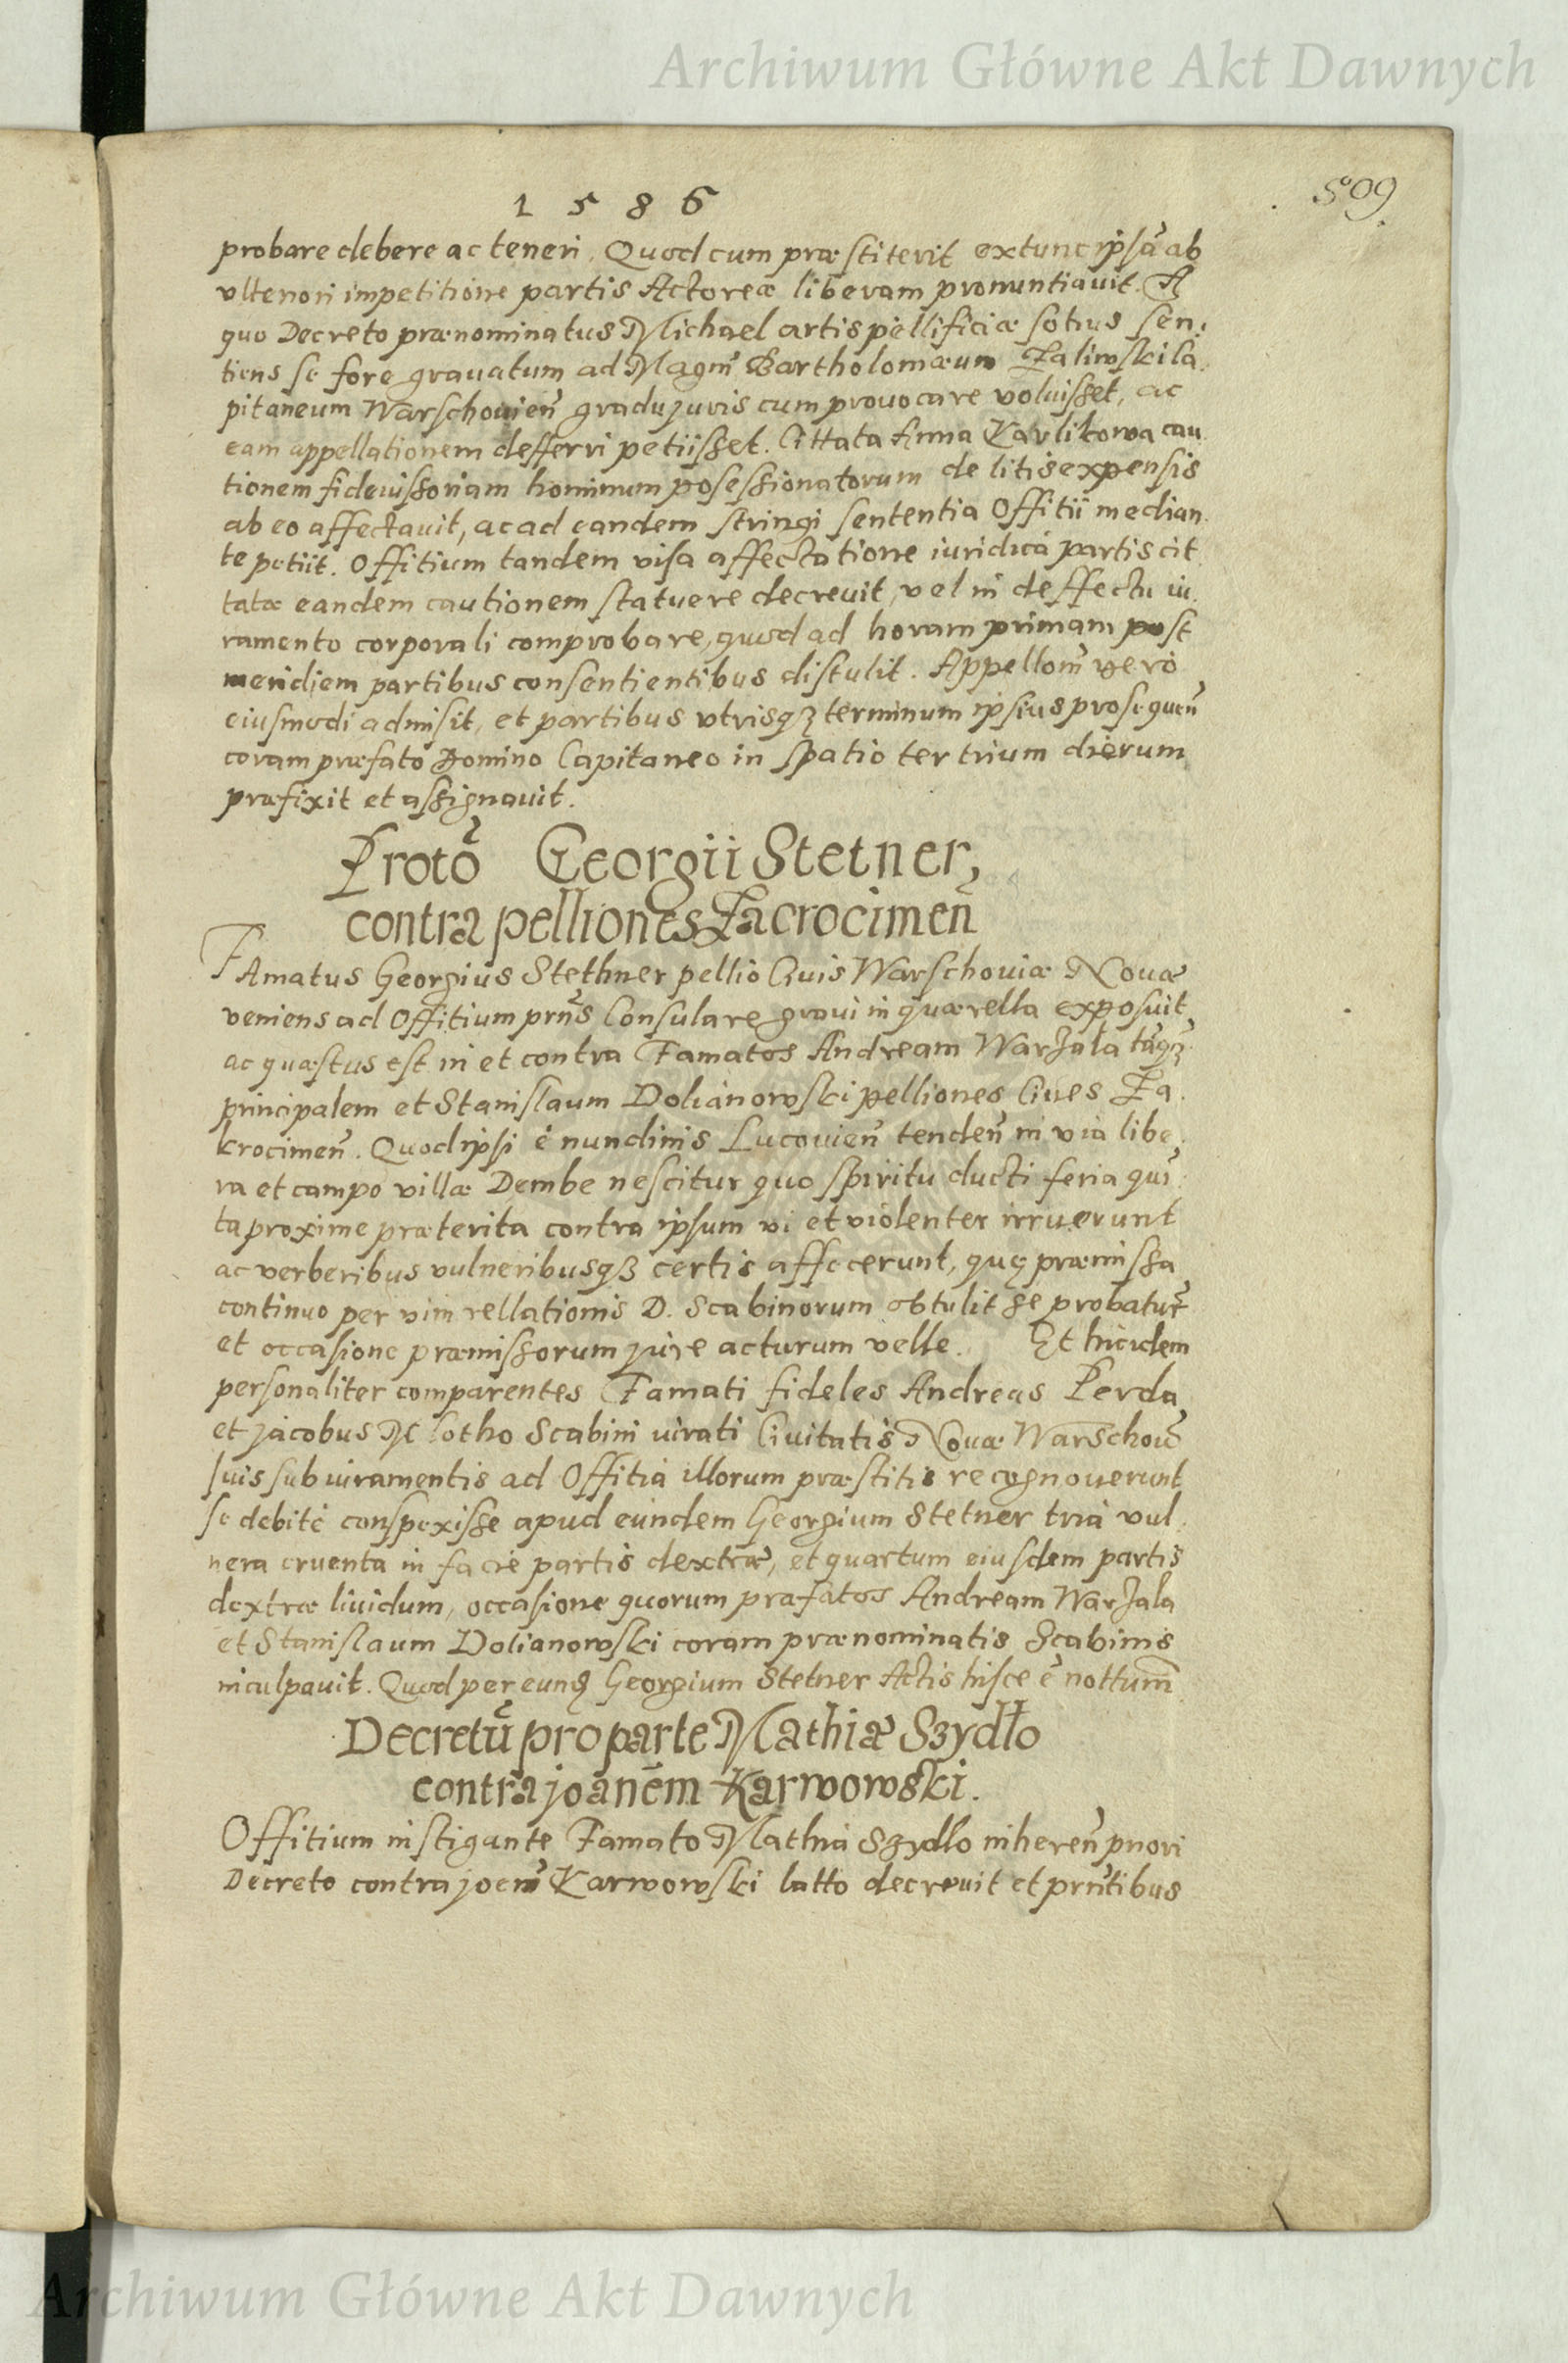 Archiwum Główne Akt Dawnych
509
1 5 8 6
probare debere ac teneri. Quod cum præstiterit extunc ipsā ab
vlteriori impetitione partis Actoreæ liberam pronuntiavit. A
quo Decreto prænominatus Michael artis pellificiæ sotius sen:
tiens se fore gravatum ad Magm̄ Bartholomæum Zaliwski Ca:
pitaneum Warschouien̄ gradu juris cum prouocare voluisset, ac
eam appellationem defferri petiisset. Cittata Anna Karlikowa cau:
tionem fideiussoriam hominum posessionatorum de litis expensis
ab eo affectauit, ac ad eandem stringi sententia Offitii median:
te petiit. Offitium tandem visa affectatione iuridicá partis cit:
tatæ eandem cautionem statuere decreuit, vel in deffectu iu:
ramento corporali comprobare, quod ad horam primam post
meridiem partibus consentientibus distulit. Appellom̄ vero
eiusmodi admisit, et partibus vtrisqꝫ terminum ipsius prosequen̄
coram præfato Domino Capitaneo in spatio ter trium dierum
præfixit et assignauit.
Protō Georgii Stetner,
contra pelliones Zacrocimen̄
FAmatus Georgius Stethner pellio Ciuis Warschouiæ Nouæ
veniens ad Offitium prn̄s Consulare graui in quærella exposuit,
ac quæstus est in et contra Famatos Andream Warzala tāqꝫ
principalem et Stanislaum Dolianowski pelliones Ciues Za:
krocimen̄. Quod ipsi é nundinis Lucouien̄ tenden̄ in via libe:
ra et campo villæ Dembe nescitur quo spiritu ducti feria qui:
ta proxime præterita contra ipsum vi et violenter irruerunt
ac verberibus vulneribusqꝫ certis affecerunt, quę præmissa
continuo per vim rellationis D. Scabinorum obtulit se probatur̄
et occasione præmissorum jure acturum velle. Et hicidem
personaliter comparentes Famati fideles Andreas Perda
et jacobus Klotho Scabini iurati Ciuitatis Nouæ Warschou̅
suis sub iuramentis ad Offitia illorum præstitis recognouerunt
se debité conspexisse apud eundem Georgium Stetner tria vul:
nera cruenta in facie partis dextræ, et quartum eiusdem partis
dextræ liuidum, occasione quorum præfatos Andream Warzala
et Stanislaum Dolianowski coram prænominatis Scabinis
inculpauit. Quod per eunđ Georgium Stetner Actis hisce ē nottum̄
Decretū pro parte Mathiæ Szydło
contra joanem Karwowski.
Offitium instigante Famato Mathia Szydło inheren̄ priori
Decreto contra joem̄ Karwowski latto decreuit et prn̄tibus
Archiwum Główne Akt Dawnych